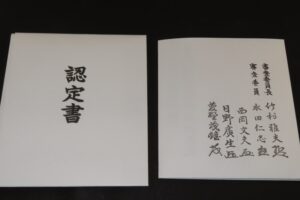 認定書
審査委員長 竹村雅夫
審査委員 永田仁志
西岡文夫
日野廣生